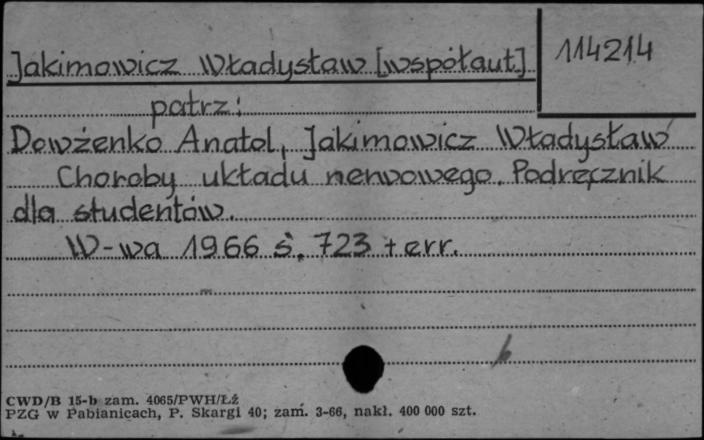 Jakimowicz Władysław [współaut.]
114214
patrz:
Dowżenko Anatol, Jakimowicz Władysław
Choroby układu nerwowego. Podręcznik
dla studentów.
W-wa 1966 s. 723 + err.
CWD/B 15-b zam. 4065/PWH/Łż
PZG w Pabianicach, P. Skargi 40; zam. 3-66, nakł. 400 000 szt.